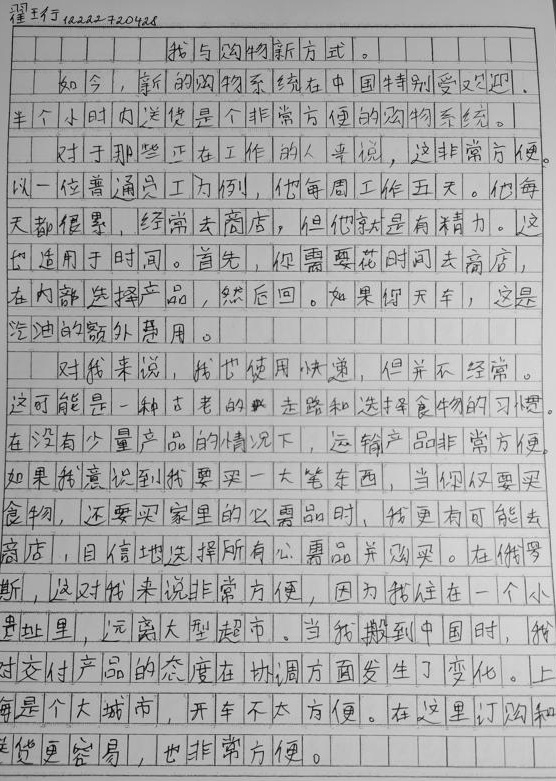 翟王行 12222720428
我与购物新方式。
如今，新的购物系统在中国特别受欢迎．
半个小时内送货是个非常方便的购物系统。
对于那些正在工作的人来说，这非常方便。
以一位普通员工为例，他每周工作五天。他每
天都很累，经常去商店，但他就是有精力。这
也适用于时间。首先，你需要花时间去商店，
在内部选择产品，然后回。如果你天车，这是
汽油的额外费用。
对我来说，我也使用快递，但并不经常。
这可能是一种古老的走路和选择食物的习惯。
在没有少量产品的情况下，运输产品非常方便。
如果我意识到我要买一大笔东西，当你仅要买
食物，还要买家里的必需品时，我更有可能去
商店，自信地选择所有必需品并购买。在俄罗
斯，这对我来说非常方便，因为我住在一个小
里，远离大型超市。当我搬到中国时，我
对交付产品的态度在协调方面发生了变化。上
海是个大城市，开车不太方便。在这里订购和
送货更容易，也非常方便。